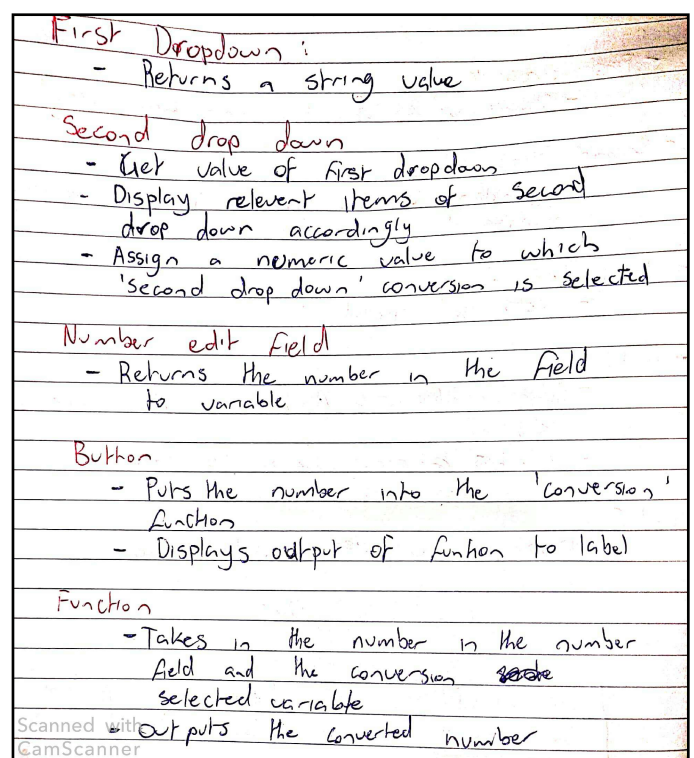 First Dropdown :
- Returns a string value
Second drop down
- Get value of first dropdown
- Display relevent items of second
drop down accordingly
- Assign a numeric value to which
'second drop down' conversion is selected
Number edit field
- Returns the number in the field
to variable
Button
- Puts the number into the 'conversion'
function
- Displays output of funtion to label
Function
- Takes in the number in the number
field and the conversion
selected variable
- Outputs the converted number
Scanned with
CamScanner